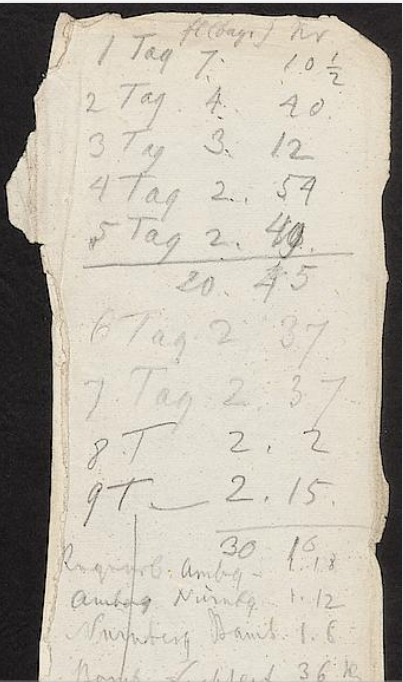 fl (bayr.) Kr
1 Tag 7. 10 ½
2 Tag 4. 40.
3 Tag 3. 12
4 Tag 2. 54
5 Tag 2. 49.
20. 45
6 Tag 2 37
7 Tag 2. 37
8 T 2. 2
9 T 2. 15.
30 16
Ambg - 1.18
Amberg Nürnbg 1.12
Nürnberg Bamb. 1.6
36 Kr